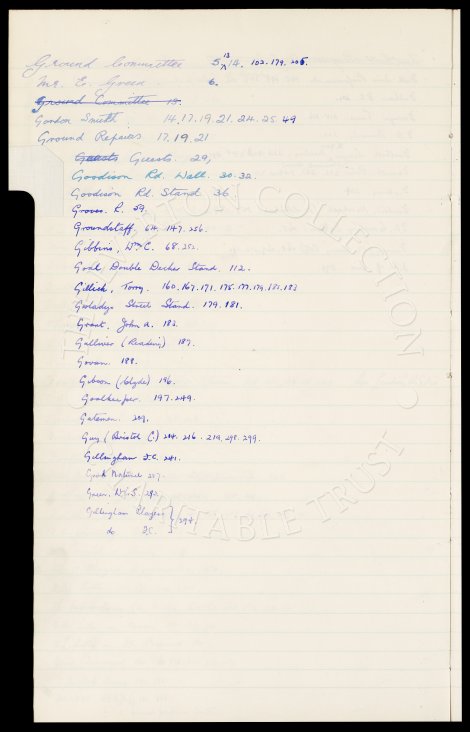 Ground Committee 5, 13, 14. 102. 179. 206.
Mr. E. Green 6.
Ground Committee 13.
Gordon Smith 14. 17. 19. 21. 24. 25. 49
Ground Repairs 17. 19. 21
Guests Guests. 29,
Goodison Rd. Wall. 30. 32.
Goodison Rd. Stand 36
Groves. R. 59.
Groundstaff, 64, 147, 256.
Gibbins, Wm C. 68. 252.
Goal Double Decker Stand. 112.
Gillick, Torry. 160. 167. 171. 175. 177. 179. 181. 183
Gwladys Street Stand. 179. 181.
Grant, John A. 182.
Galliver (Reading) 187.
Govan. 188.
Gibson (Clyde) 196.
Goalkeeper. 197. 249.
Gatemen. 209.
Guy (Bristol C.) 214. 216. 219, 298. 299.
Gillingham F.C. 241.
Grand National 257.
Greer. W.S. 292.
Gillingham Players 294
do F.C.
THE EVERTON COLLECTION CHARITABLE TRUST